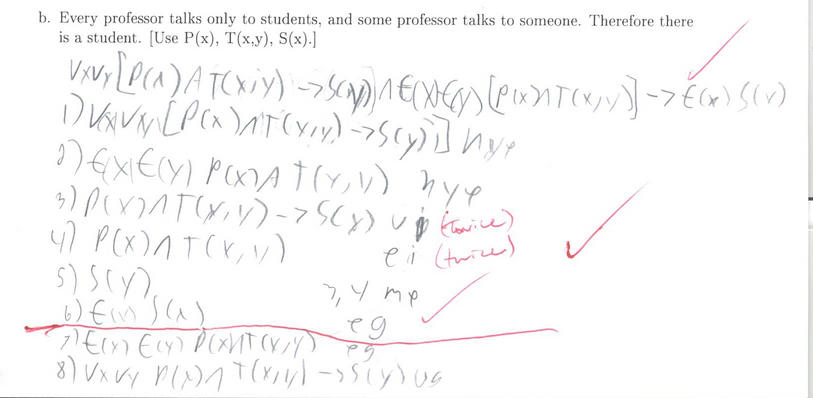 b. Every professor talks only to students, and some professor talks to someone. Therefore there
is a student. [Use P(x), T(x,y), S(x).]
∀x∀y[P(x) ∧ T(x,y) -> S(y)] ∧ E(x)E(y)[P(x) ∧ T(x,y)] -> E(x) S(x)
1) ∀x∀y[P(x) ∧ T(x,y) -> S(y)] hyp
2) E(x)E(y) P(x) ∧ T(x,y) hyp
3) P(x) ∧ T(x,y) -> S(y) ui (twice)
4) P(x) ∧ T(x,y) ei (twice)
5) S(y) 3,4 mp
6) E(x) S(x) eg
7) E(x) E(y) P(x) ∧ T(x,y) eg
8) ∀x ∀y P(x) ∧ T(x,y) -> S(y) ug